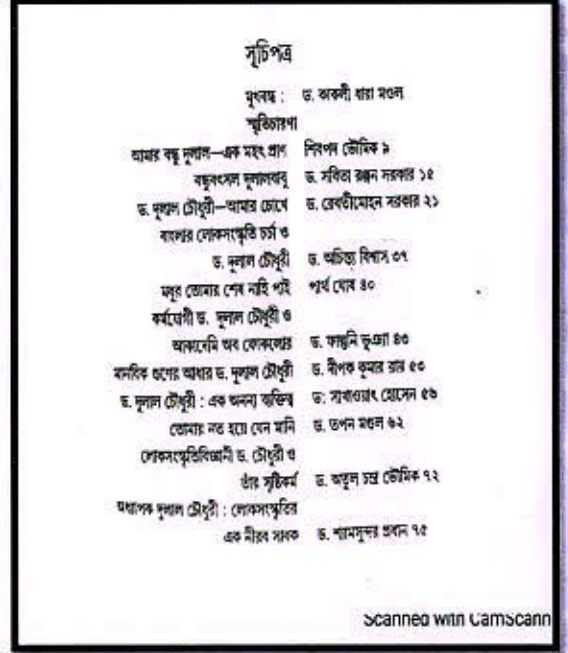 সূচিপত্র
মুখবন্ধ : ড. কাকলী ধারা মণ্ডল
স্মৃতিচারণা
আমার বন্ধু দুলাল—এক মহৎ প্রাণ শিবপদ ভৌমিক ৯
বন্ধুবৎসল দুলালবাবু ড. সবিতা রঞ্জন সরকার ১৫
ড. দুলাল চৌধুরী—আমার চোখে ড. রেবতীমোহন সরকার ২১
বাংলার লোকসংস্কৃতি চর্চা ও
ড. দুলাল চৌধুরী ড. অচিন্ত্য বিশ্বাস ৩৭
মধুর তোমার শেষ নাহি পাই পার্থ ঘোষ ৪০
কর্মযোগী ড. দুলাল চৌধুরী ও
আকাদেমি অব ফোকলোর ড. ফাল্গুনি ভূঞ্যা ৪৩
মানবিক গুণের আধার ড. দুলাল চৌধুরী ড. দীপক কুমার রায় ৫৩
ড. দুলাল চৌধুরী : এক অনন্য ব্যক্তিত্ব ড: সাখাওয়াৎ হোসেন ৫৬
তোমায় নত হয়ে যেন মানি ড. তপন মণ্ডল ৬২
লোকসংস্কৃতিবিজ্ঞানী ড. চৌধুরী ও
তাঁর সৃষ্টিকর্ম ড. অতুল চন্দ্র ভৌমিক ৭২
অধ্যাপক দুলাল চৌধুরী : লোকসংস্কৃতির
এক নীরব সাধক ড. শ্যামসুন্দর প্রধান ৭৫
Scanned with CamScann